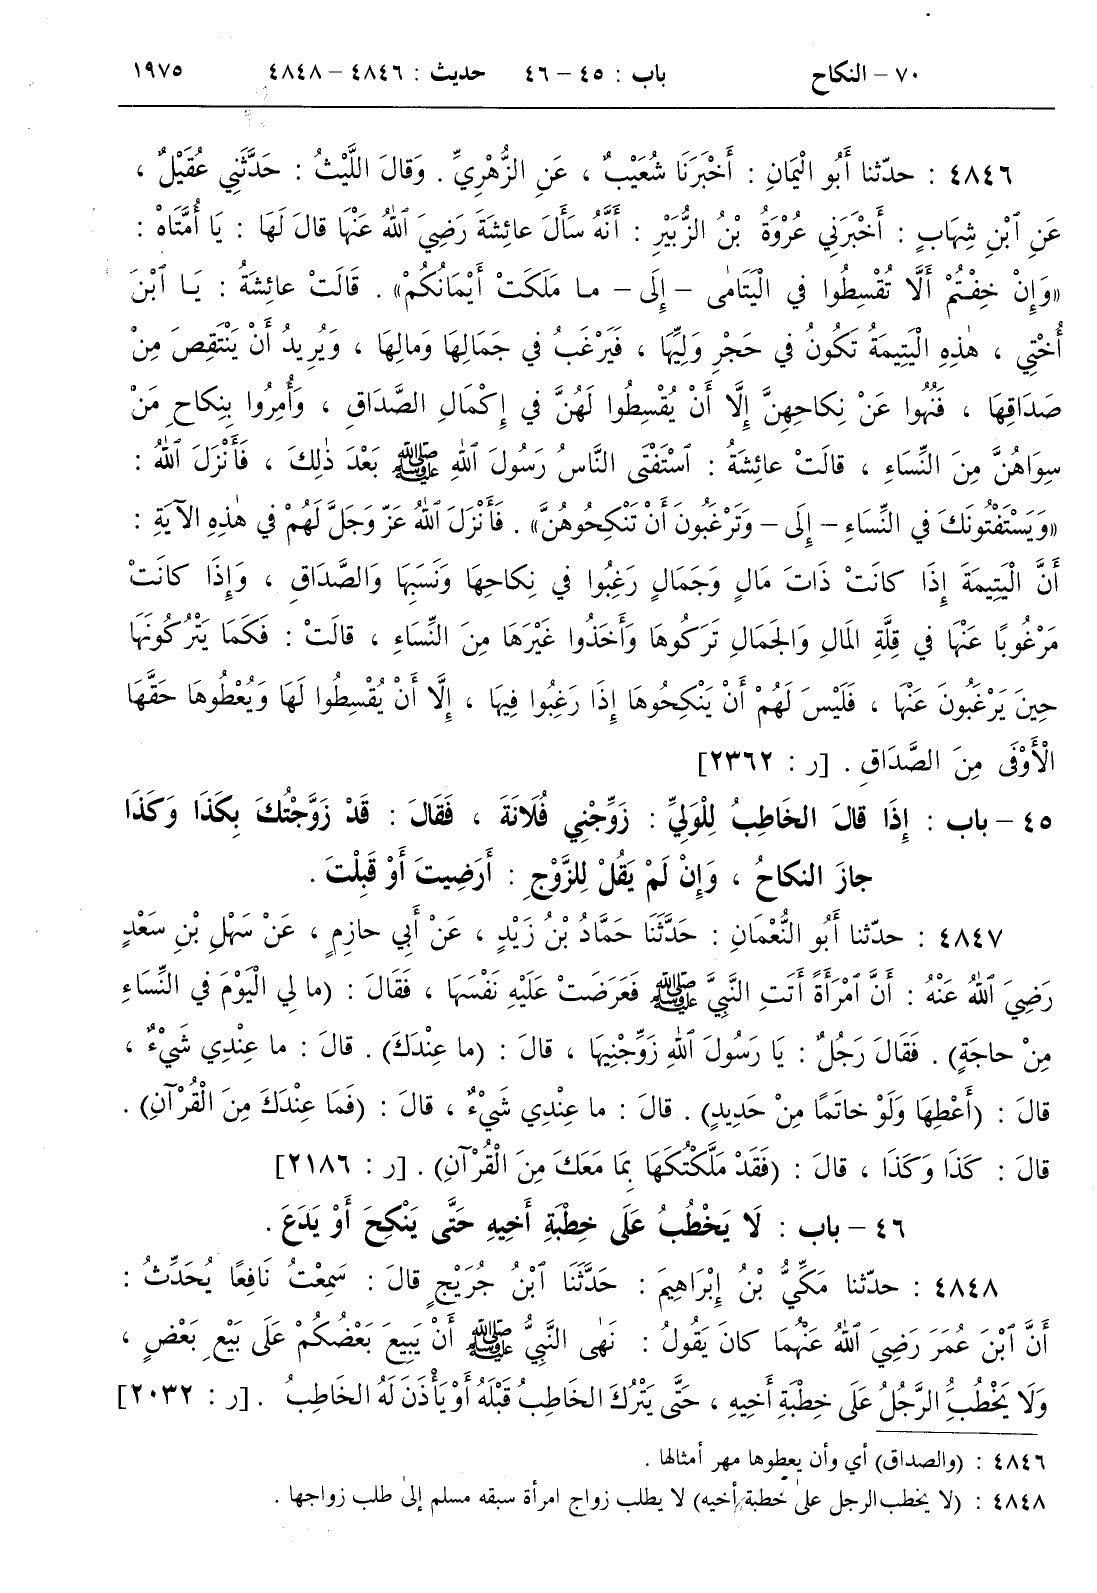 ٧٠ – النكاح باب : ٤٥ – ٤٦ حديث : ٤٨٤٦ – ٤٨٤٨ ١٩٧٥
٤٨٤٦ : حدّثنا أَبُو الْيَمانِ : أَخْبَرَنَا شُعَيْبٌ ، عَنِ الزُّهْرِيِّ . وَقالَ اللَّيْثُ : حَدَّثَنِي عُقَيْلٌ ،
عَنِ ٱبْنِ شِهَابٍ : أَخْبَرَنِي عُرْوَةُ بْنُ الزُّبَيْرِ : أَنَّهُ سَأَلَ عائِشَةَ رَضِيَ ٱللهُ عَنْهَا قالَ لَهَا : يَا أُمَّتَاهْ :
«وَإِنْ خِفْتُمْ أَلَّا تُقْسِطُوا في الْيَتَامٰى – إِلَى – ما مَلَكَتْ أَيْمَانُكُمْ» . قَالَتْ عائِشَةُ : يَا ٱبْنَ
أُخْتِي ، هٰذِهِ الْيَتِيمَةُ تَكُونُ في حَجْرِ وَلِيِّهَا ، فَيَرْغَبُ في جَمَالِهَا وَمالِهَا ، وَيُرِيدُ أَنْ يَنْتَقِصَ مِنْ
صَدَاقِهَا ، فَنُهُوا عَنْ نِكاحِهِنَّ إِلَّا أَنْ يُقْسِطُوا لَهُنَّ في إِكْمَالِ الصَّدَاقِ ، وَأُمِرُوا بِنِكاحِ مَنْ
سِوَاهُنَّ مِنَ النِّسَاءِ ، قالَتْ عائِشَةُ : ٱسْتَفْتَى النَّاسُ رَسُولَ ٱللهِ ﷺ بَعْدَ ذٰلِكَ ، فَأَنْزَلَ ٱللهُ :
«وَيَسْتَفْتُونَكَ في النِّسَاءِ – إِلَى – وَتَرْغَبُونَ أَنْ تَنْكِحُوهُنَّ» . فَأَنْزَلَ ٱللهُ عَزَّ وَجَلَّ لَهُمْ في هٰذِهِ الآيَةِ :
أَنَّ الْيَتِيمَةَ إِذَا كانَتْ ذَاتَ مَالٍ وَجَمَالٍ رَغِبُوا في نِكاحِهَا وَنَسَبِهَا وَالصَّدَاقِ ، وَإِذَا كانَتْ
مَرْغُوبًا عَنْهَا في قِلَّةِ المَالِ وَالجَمَالِ تَرَكُوهَا وَأَخَذُوا غَيْرَهَا مِنَ النِّسَاءِ ، قالَتْ : فَكَمَا يَتْرُكُونَهَا
حِينَ يَرْغَبُونَ عَنْهَا ، فَلَيْسَ لَهُمْ أَنْ يَنْكِحُوهَا إِذَا رَغِبُوا فِيهَا ، إِلَّا أَنْ يُقْسِطُوا لَهَا وَيُعْطُوهَا حَقَّهَا
الْأَوْفَى مِنَ الصَّدَاقِ . [ر : ٢٣٦٢]
٤٥ – باب : إِذَا قالَ الخَاطِبُ لِلْوَلِيِّ : زَوِّجْنِي فُلَانَةَ ، فَقَالَ : قَدْ زَوَّجْتُكَ بِكَذَا وَكَذَا
جازَ النكاحُ ، وَإِنْ لَمْ يَقُلْ لِلزَّوْجِ : أَرَضِيتَ أَوْ قَبِلْتَ .
٤٨٤٧ : حدّثنا أَبُو النُّعْمَانِ : حَدَّثَنَا حَمَّادُ بْنُ زَيْدٍ ، عَنْ أَبِي حازِمٍ ، عَنْ سَهْلِ بْنِ سَعْدٍ
رَضِيَ ٱللهُ عَنْهُ : أَنَّ ٱمْرَأَةً أَتَتِ النَّبِيَّ ﷺ فَعَرَضَتْ عَلَيْهِ نَفْسَهَا ، فَقَالَ : (ما لِي الْيَوْمَ في النِّسَاءِ
مِنْ حاجَةٍ) . فَقَالَ رَجُلٌ : يَا رَسُولَ ٱللهِ زَوِّجْنِيهَا ، قالَ : (ما عِنْدَكَ) . قالَ : ما عِنْدِي شَيْءٌ ،
قالَ : (أَعْطِهَا وَلَوْ خاتَمًا مِنْ حَدِيدٍ) . قالَ : ما عِنْدِي شَيْءٌ ، قالَ : (فَمَا عِنْدَكَ مِنَ الْقُرْآنِ) .
قالَ : كَذَا وَكَذَا ، قالَ : (فَقَدْ مَلَّكْتُكَهَا بِمَا مَعَكَ مِنَ الْقُرْآنِ) . [ر : ٢١٨٦]
٤٦ – باب : لَا يَخْطُبُ عَلَى خِطْبَةِ أَخِيهِ حَتَّى يَنْكِحَ أَوْ يَدَعَ .
٤٨٤٨ : حدّثنا مَكِّيُّ بْنُ إِبْرَاهِيمَ : حَدَّثَنَا ٱبْنُ جُرَيْجٍ قالَ : سَمِعْتُ نَافِعًا يُحَدِّثُ :
أَنَّ ٱبْنَ عُمَرَ رَضِيَ ٱللهُ عَنْهُمَا كانَ يَقُولُ : نَهٰى النَّبِيُّ ﷺ أَنْ يَبِيعَ بَعْضُكُمْ عَلَى بَيْعِ بَعْضٍ ،
وَلَا يَخْطُبُ الرَّجُلُ عَلَى خِطْبَةِ أَخِيهِ ، حَتَّى يَتْرُكَ الخَاطِبُ قَبْلَهُ أَوْ يَأْذَنَ لَهُ الخَاطِبُ . [ر : ٢٠٣٢]
٤٨٤٦ : (والصداق) أي وأن يعطوها مهر أمثالها .
٤٨٤٨ : (لا يخطب الرجل علىٰ خطبة أخيه) لا يطلب زواج امرأة سبقه مسلم إلىٰ طلب زواجها .